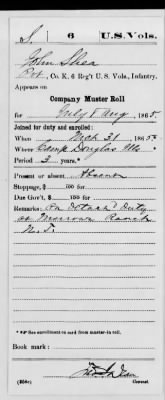 S | 6 | U.S.Vols.
John Shea
Pvt., Co. K, 6 Reg't U. S. Vols., Infantry.
Appears on
Company Muster Roll
for July & Aug, 1865.
Joined for duty and enrolled:
When Mch 31, 1865.
Where Camp Douglas Ills
Period 3 years.*
Present or absent, Absent
Stoppage, $ 100 for
Due Gov't, $ 100 for
Remarks: On Detach'd Duty
at Morrows Ranch
N.T.
*See enrollment on card from muster-in roll.
Book mark:
(358c)
Copyist.